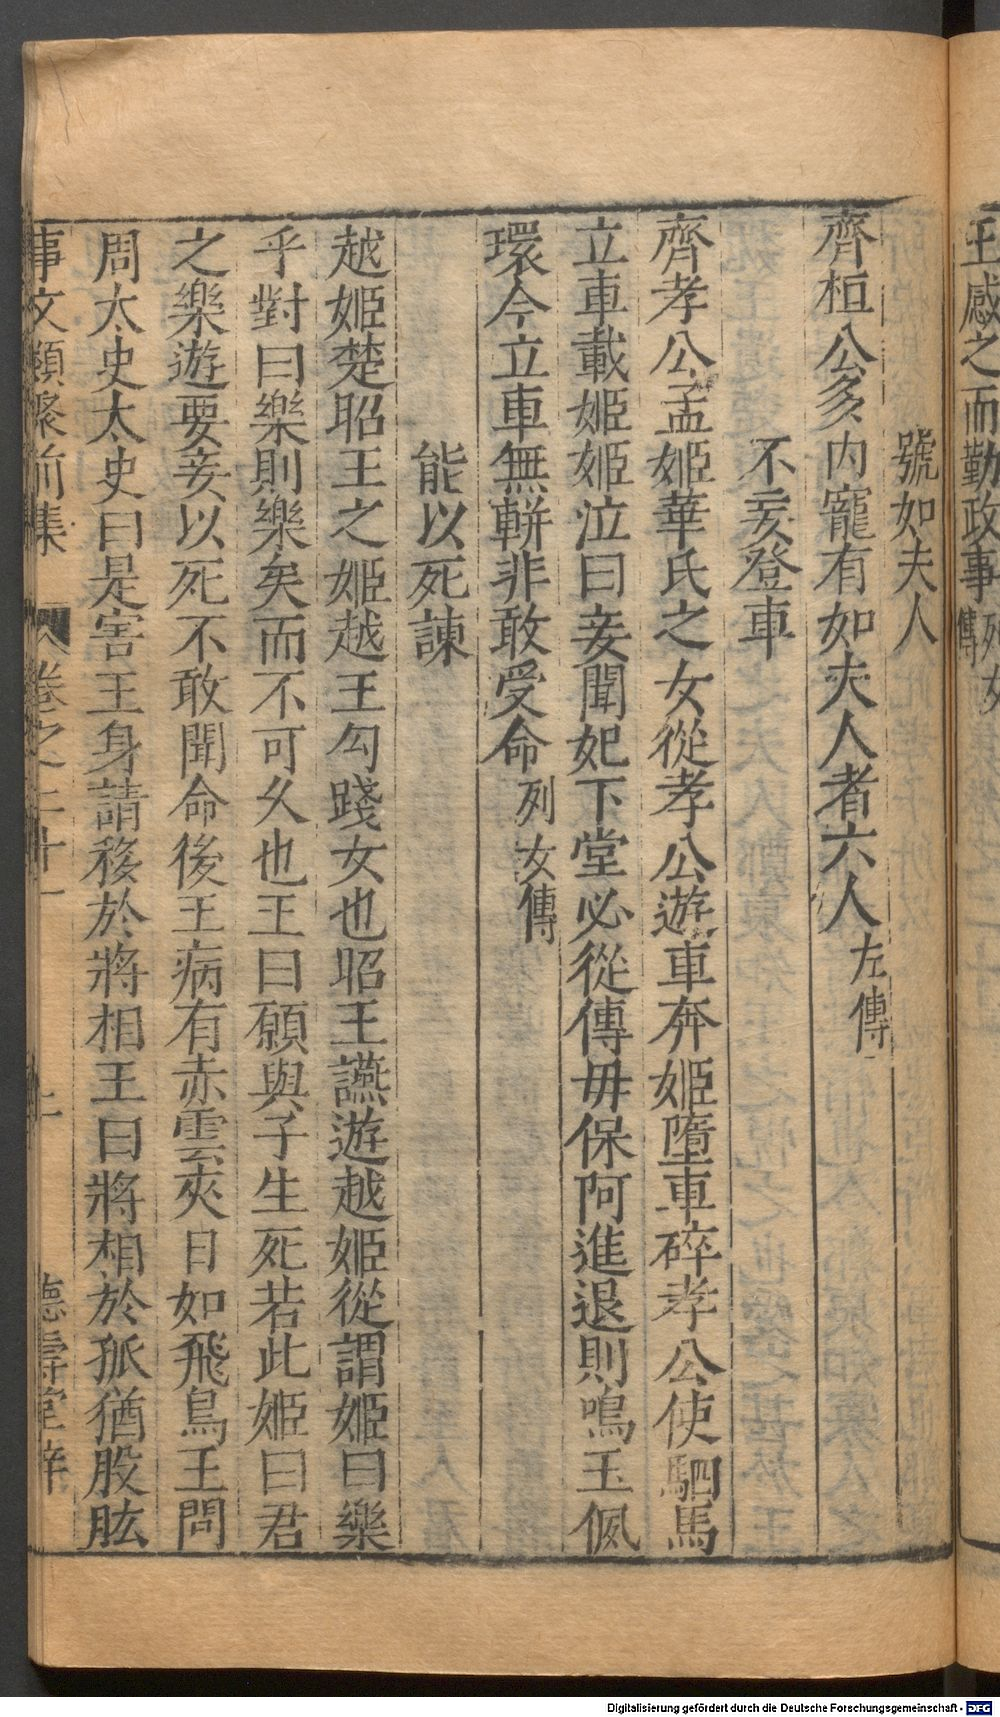 王感之而勤政事列女傳
號如夫人
齊桓公多内寵有如夫人者六人左傳
不妄登車
齊孝公孟姬華氏之女從孝公遊車奔姬墮車碎孝公使駟馬
立車載姬姬泣曰妾聞妃下堂必從傅毋保阿進退則鳴玉佩
環今立車無軿非敢受命列女傳
能以死諫
越姬楚昭王之姬越王勾踐女也昭王讌遊越姬從謂姬曰樂
乎對曰樂則樂矣而不可久也王曰願與子生死若此姬曰君
之樂遊要妾以死不敢聞命後王病有赤雲夾日如飛鳥王問
周太史太史曰是害王身請移於將相王曰將相於孤猶股肱
事文類聚前集 卷之二十一 德壽堂梓
Digitalisierung gefördert durch die Deutsche Forschungsgemeinschaft - DFG